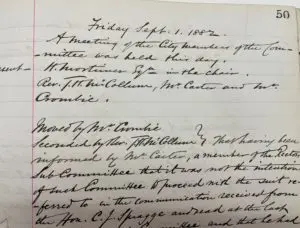 50
Friday Sept. 1. 1882.
A meeting of the City members of the Com-
-mittee was held this day.
H. Mortimer Esq in the chair.
Rev. J. H. McCollum, Mr. Carter and Mr.
Crombie.
Moved by Mr. Crombie
Seconded by Rev. JH McCollum } That having been
informed by Mr. Carter, a member of the
Sub Committee that it was not the intention
of such Committee to proceed with the suit re-
ferred to in the communication received from
the Hon. C. J. Spragge and read at the last